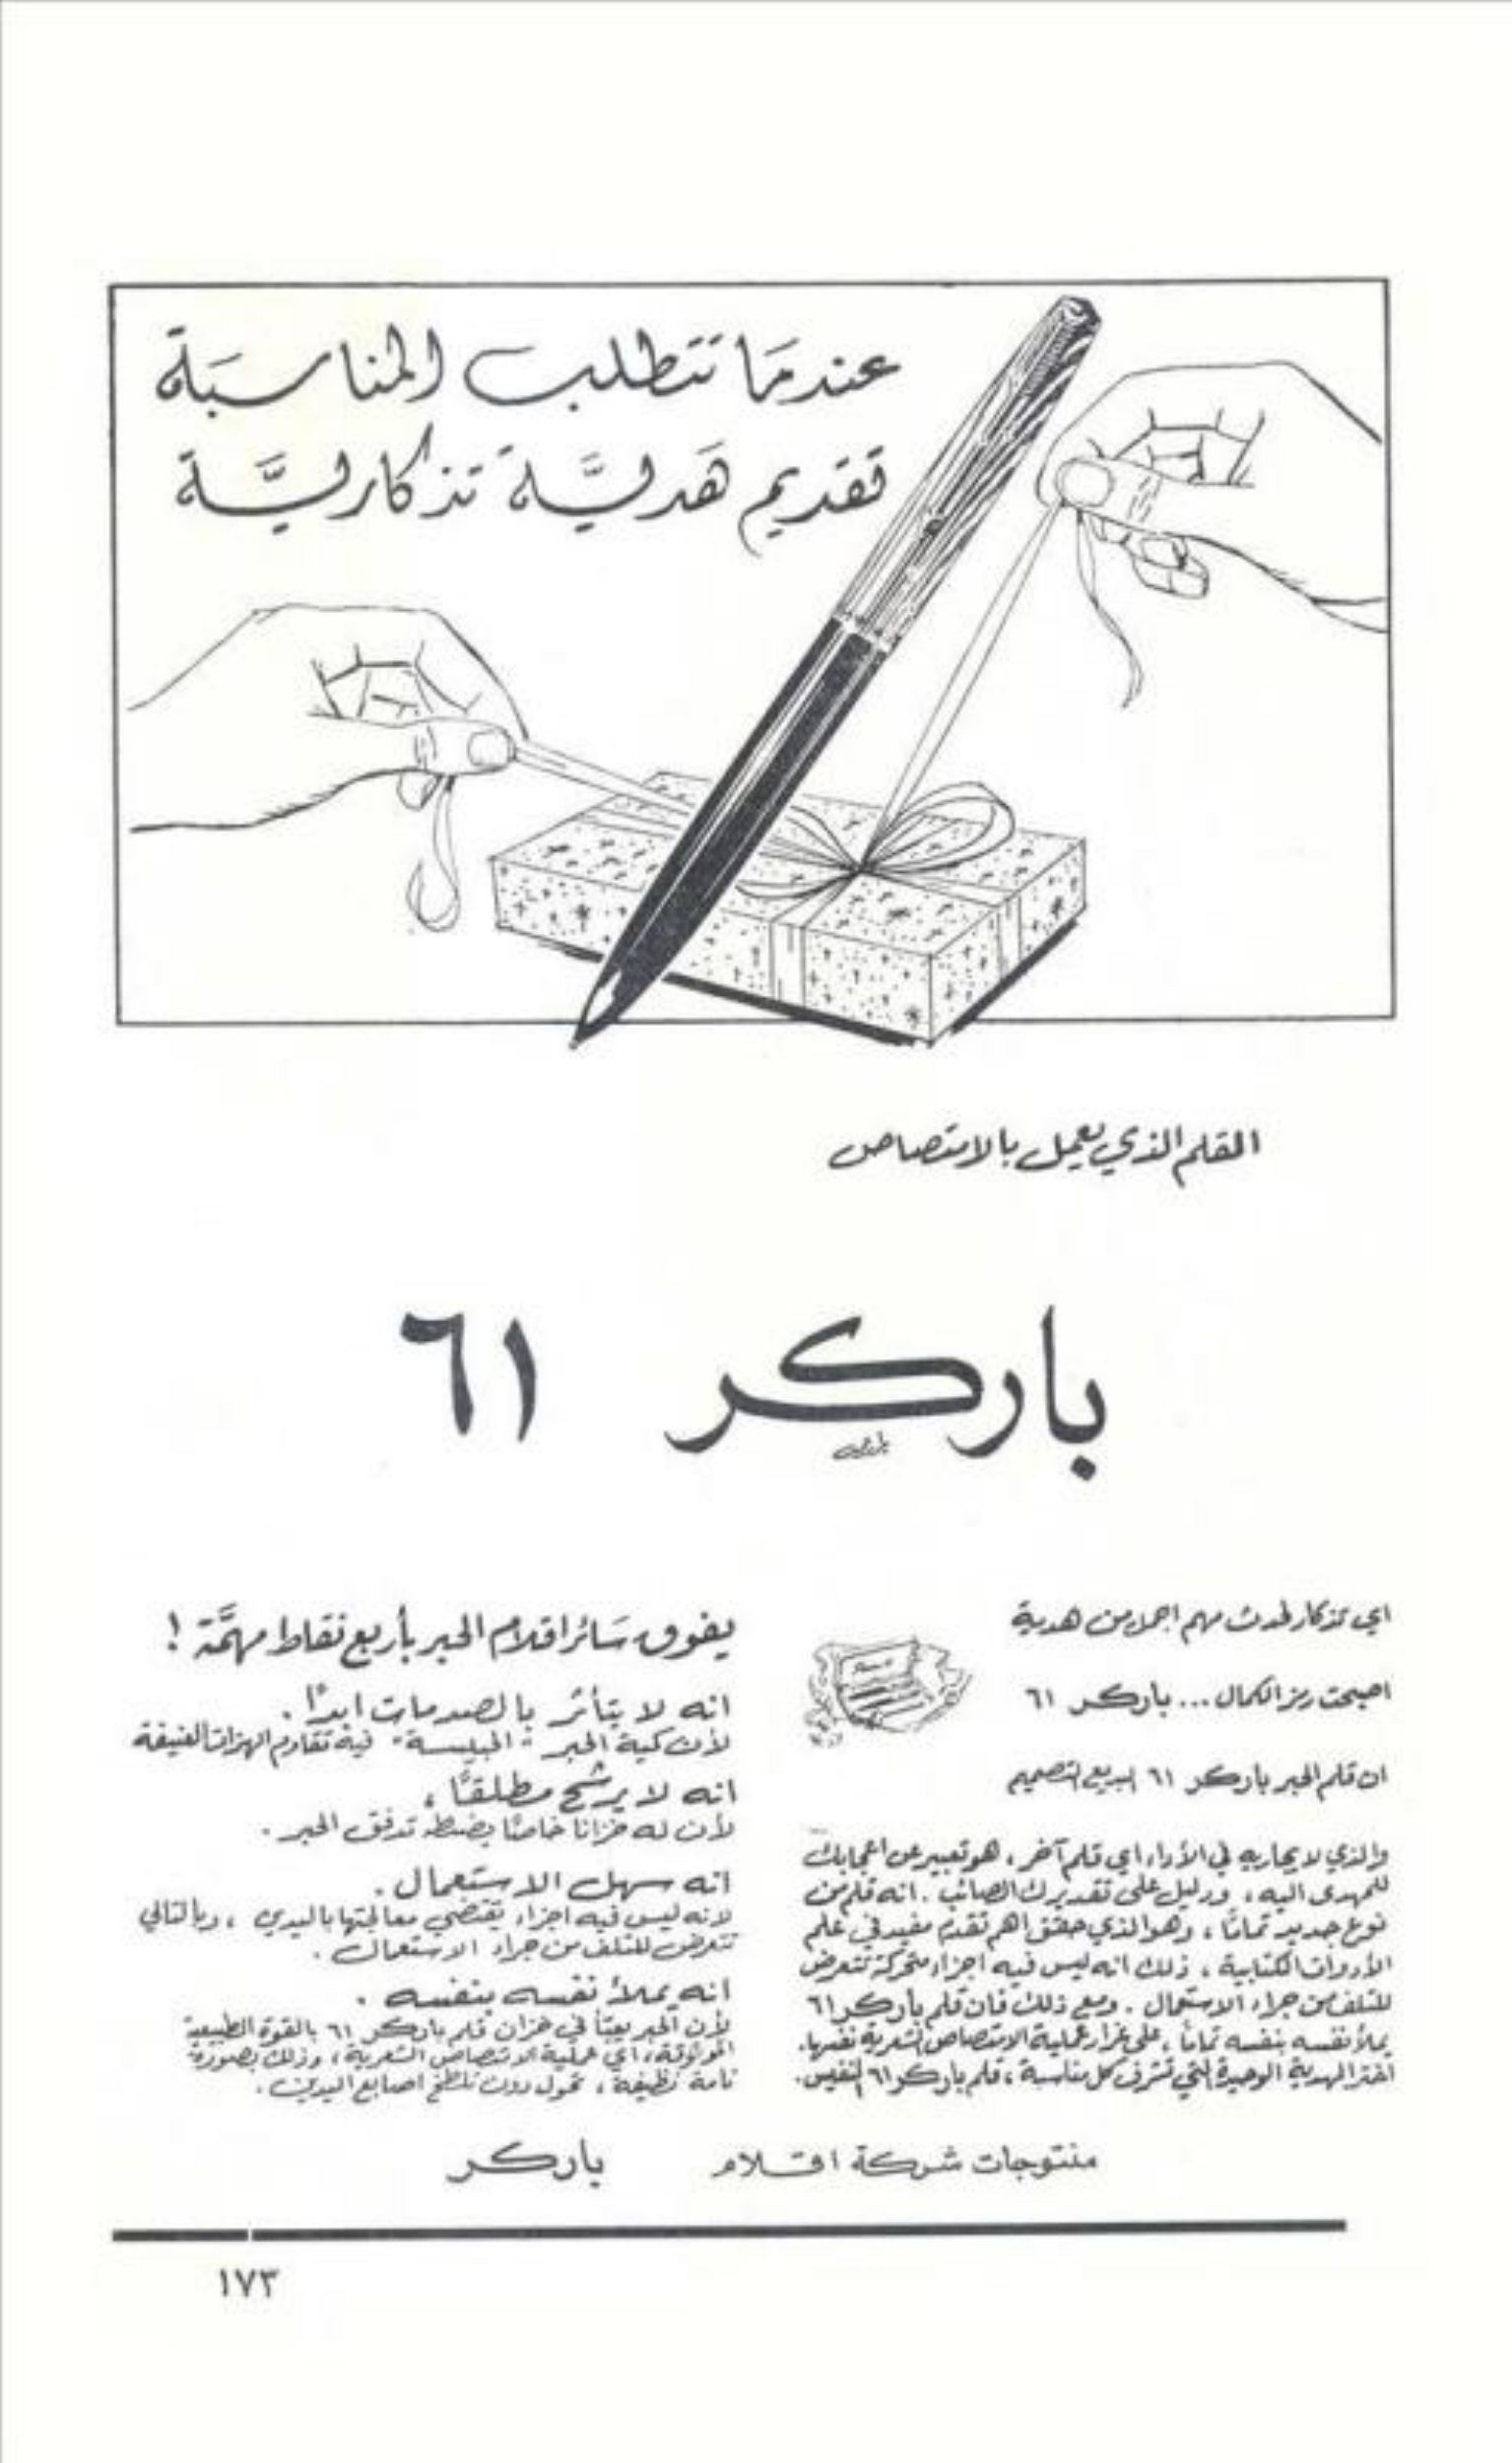 عندمَا تتطلب المناسبَة
تقديم هَديَّة تذكاريَّة
القلم الذي يعمل بالامتصاص
باركر ٦١
اي تذكار لحدث مهم اجمل من هدية
اصبحت رمز الكمال... باركر ٦١
ان قلم الحبر باركر ٦١ البديع التصميم
والذي لا يجاريه في الأداء اي قلم آخر، هو تعبير عن اعجابك
للمهدى اليه، ودليل على تقديرك الصائب. انه قلم من
نوع جديد تمامًا، وهو الذي حقق اهم تقدم مفيد في علم
الأدوات الكتابية، ذلك انه ليس فيه اجزاء متحركة تتعرض
للتلف من جراء الاستعمال. ومع ذلك فان قلم باركر ٦١
يملأ نفسه بنفسه تمامًا، على غرار عملية الامتصاص الشعرية نفسها.
اختر الهدية الوحيدة التي تشرف كل مناسبة، قلم باركر ٦١ النفيس.
يفوق سَائر اقلام الحبر بأربع نقاط مهمَّة!
انه لا يتأثر بالصدمات ابدًا.
لأن كمية الحبر "الحبيسة" فيه تقاوم الهزات العنيفة
انه لا يرشح مطلقًا،
لأن له خزانا خاصًا يضبط تدفق الحبر.
انه سهل الاستعمال.
لانه ليس فيه اجزاء يقتضي معالجتها باليدي، وبالتالي
تتعرض للتلف من جراء الاستعمال.
انه يملأ نفسه بنفسه.
لأن الحبر يعبّأ في خزان قلم باركر ٦١ بالقوة الطبيعية
الموثوقة، اي عملية الامتصاص الشعرية، وذلك بصورة
تامة نظيفة، تحول دون تلطخ اصابع اليدين.
منتوجات شركة اقلام باركر
١٧٣